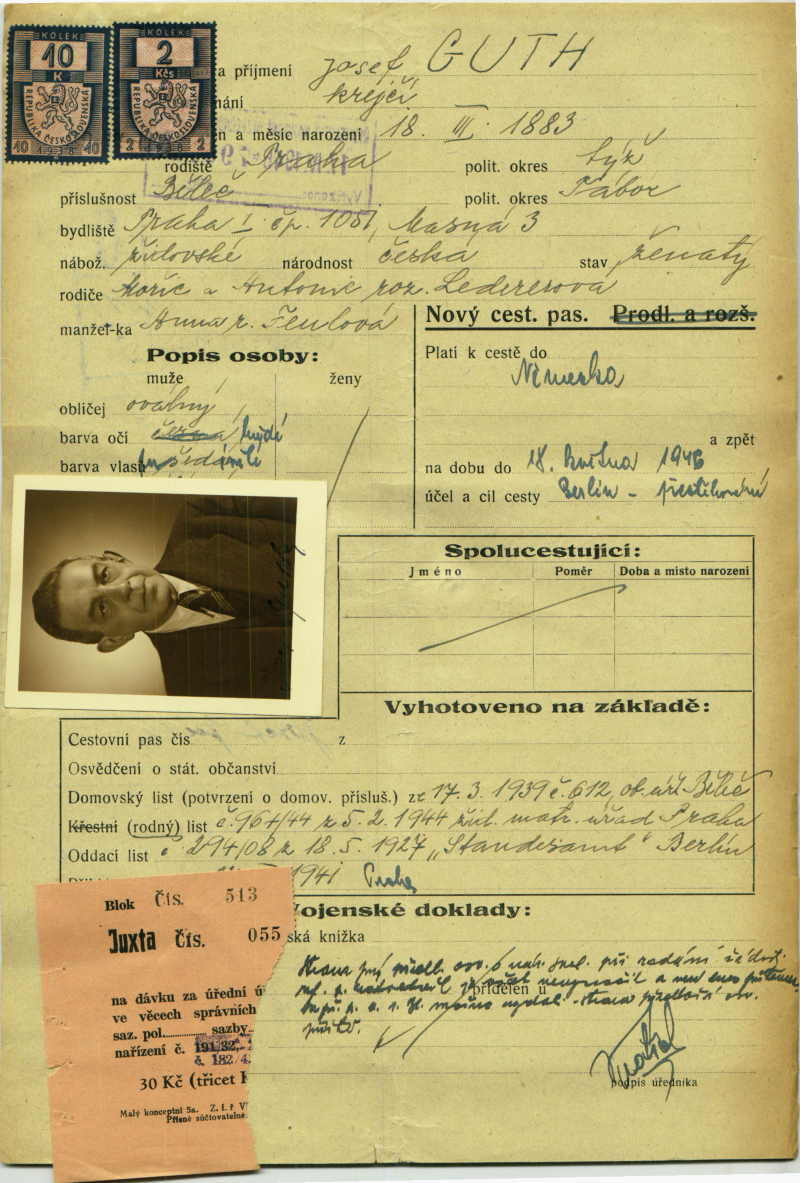 KOLEK KOLEK
10 2
K Kčs
REPUBLIKA ČESKOSLOVENSKÁ REPUBLIKA ČESKOSLOVENSKÁ
10 1938 10 2 1938 2
a příjmení Josef GUTH
nání krejčí
en a měsíc narození 18. III. 1883
rodiště Praha polit. okres týž
příslušnost Běleč polit. okres Tábor
bydliště Praha I. čp. 1051, Masná 3
nábož. židovské národnost česká stav ženatý
rodiče Mořic a Antonie roz. Ledererová
manžel-ka Anna r.
Nový cest. pas. Prodl. a rozš.
Popis osoby:
muže ženy
obličej oválný
barva očí černá hnědé
barva vlasů
Platí k cestě do
Německa
a zpět
na dobu do 18. května 1946
účel a cíl cesty Berlin - přestěhování
Spolucestující:
Jméno Poměr Doba a místo narození
Vyhotoveno na základě:
Cestovní pas čís z
Osvědčení o stát. občanství
Domovský list (potvrzení o domov. přísluš.) ze 17. 3. 1939 č. 612, ob. úř. Běleč
Křestní (rodný) list č. 967/44 z 5. 2. 1944 žid. matr. úřad Praha
Oddací list č. 294/08 z 18. 5. 1927 „Standesamt“ Berlin
1941 Praha
Vojenské doklady:
ská knížka
přidělen u
podpis úředníka
Blok Čís. 513
Juxta Čís. 055
na dávku za úřední ú
ve věcech správních
saz. pol. sazby
nařízení č. 191/32,
č. 182/4
30 Kč (třicet K
Malý konceptní 5a. Z. ř. V
Přísně súčtovatelné